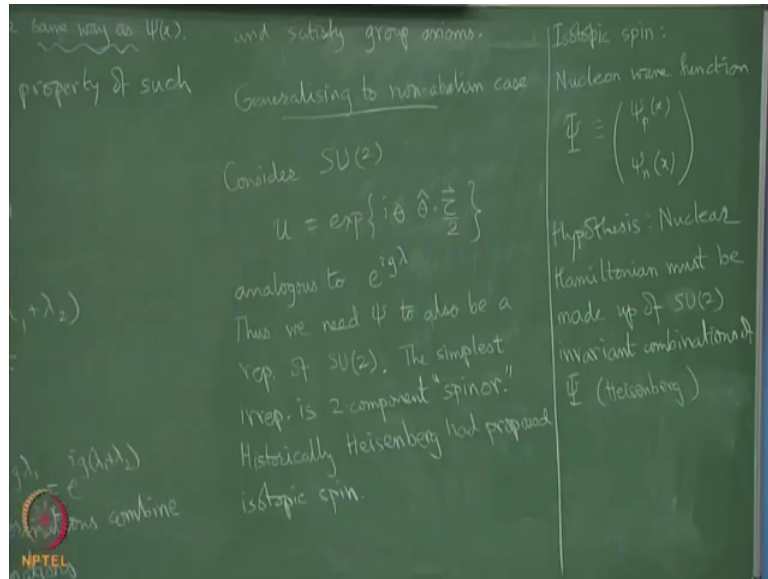 same way as ψ(x).
property of such
, + λ₂)
gλ₁ = e^{ig(λ₁+λ₂)}
combine
and satisfy group axioms.
Generalising to non-abelian case
Consider SU(2)
U = exp{iθ θ̂·τ⃗/2}
analogous to e^{igλ}
Thus we need ψ to also be a
rep. of SU(2). The simplest
irrep. is 2 component "spinor."
Historically Heisenberg had proposed
isotopic spin.
Isotopic spin :
Nucleon wave function
Ψ ≡ (ψ_p(x)
ψ_n(x))
Hypothesis : Nuclear
Hamiltonian must be
made up of SU(2)
invariant combinations of
Ψ (Heisenberg)
NPTEL